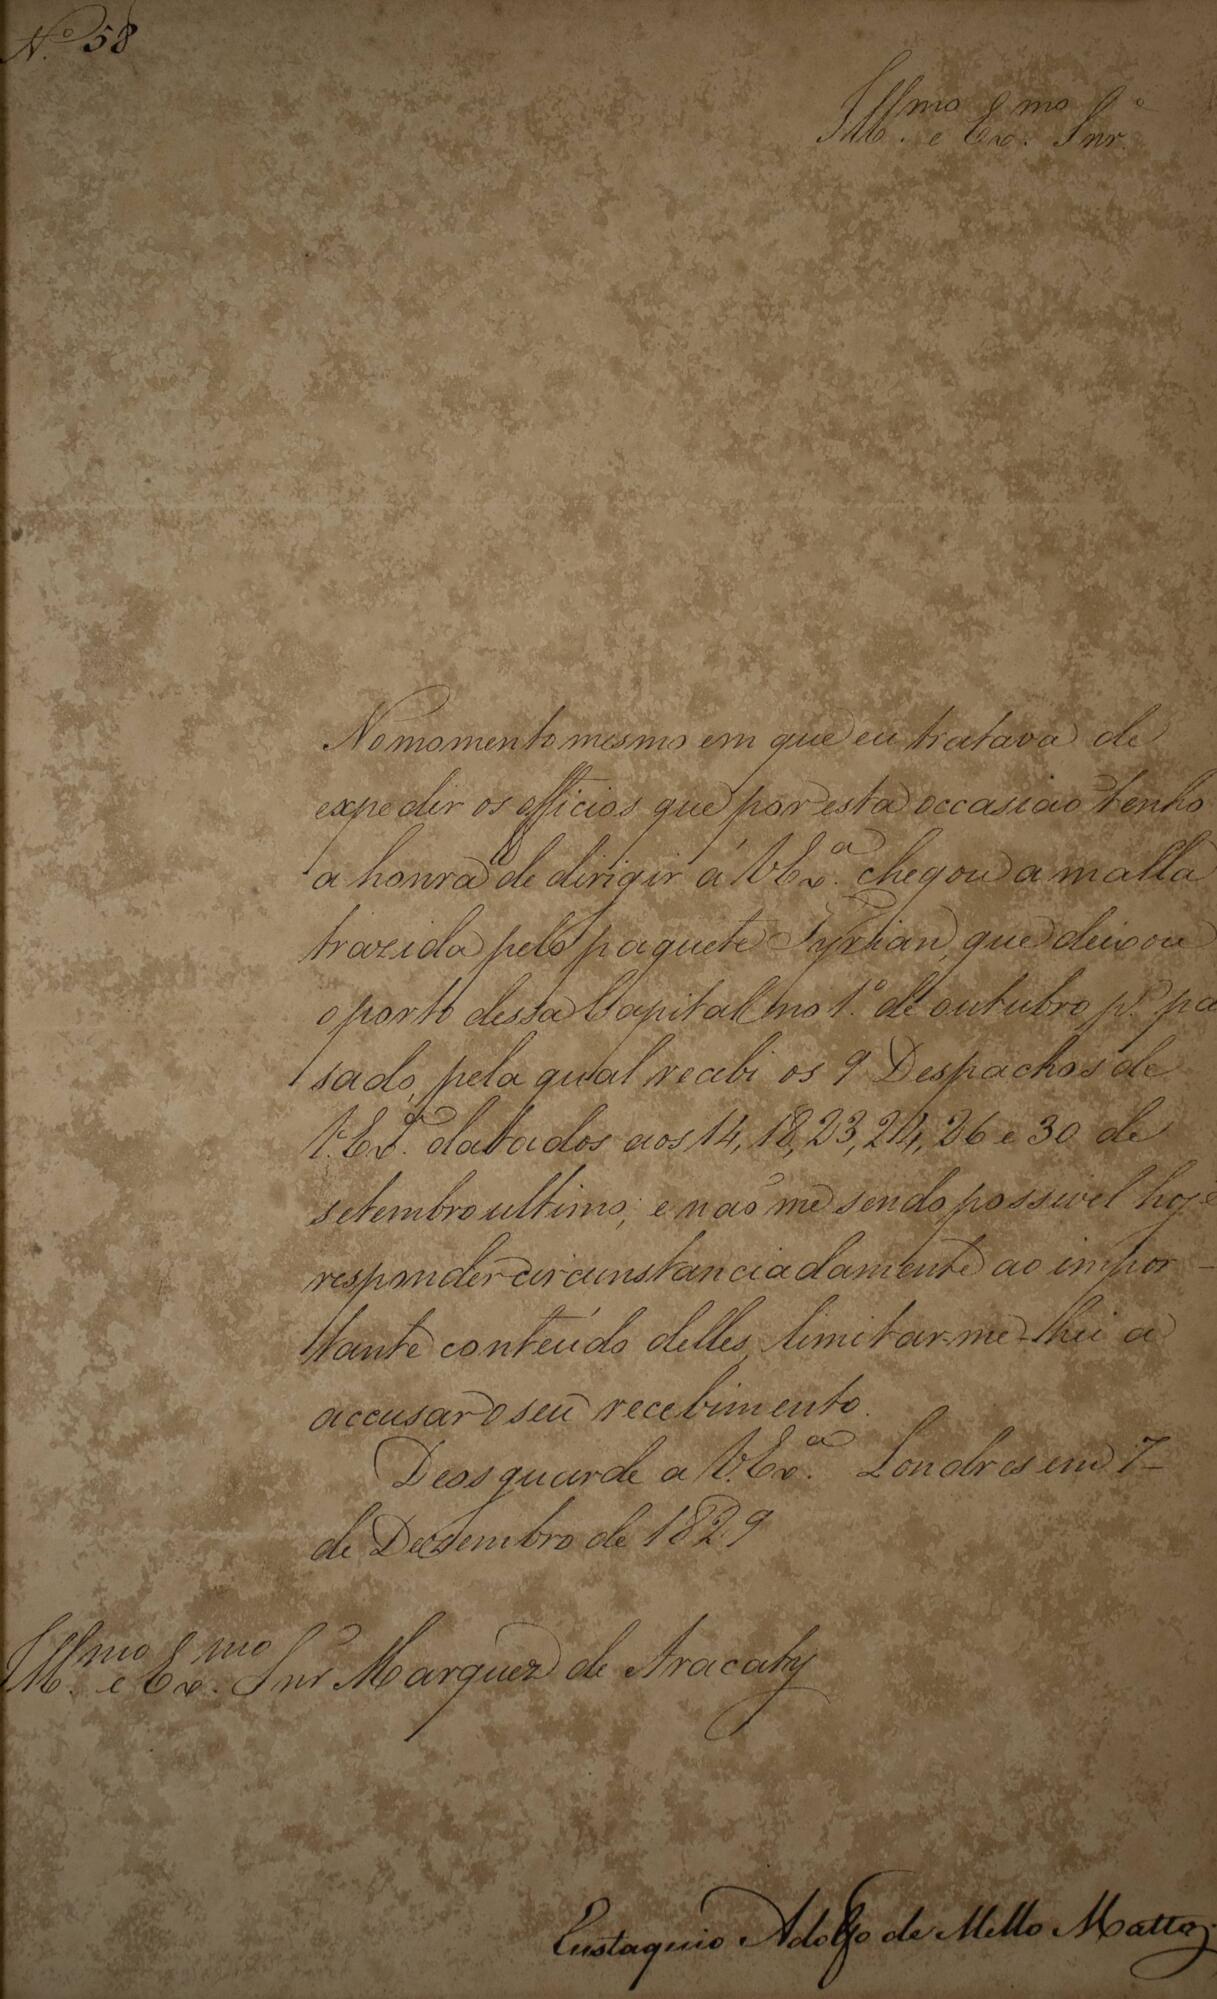 N.º 58
Ill.mo e Ex.mo Snr.º
No momento mesmo em que eu tratava de
expedir os officios que por esta occasião tenho
a honra de dirigir á V Ex.ª chegou a malla
trazida pelo paquete Tyrian, que deixou
o porto dessa Capital no 1.º de outubro p.º pa
sado, pela qual recebi os 9 Despachos de
V. Ex.ª datados aos 14, 18, 23, 24, 26 e 30 de
setembro ultimo; e não me sendo possivel hoje
responder circunstanciadamente ao impor-
tante conteúdo delles, limitar-me-hei a
accusar o seu recebimento.
Deos guarde a V. Ex.ª Londres em 7
de Dezembro de 1829
Ill.mo e Ex.mo Snr Marquez de Aracaty
Eustaquio Adolfo de Mello Mattos